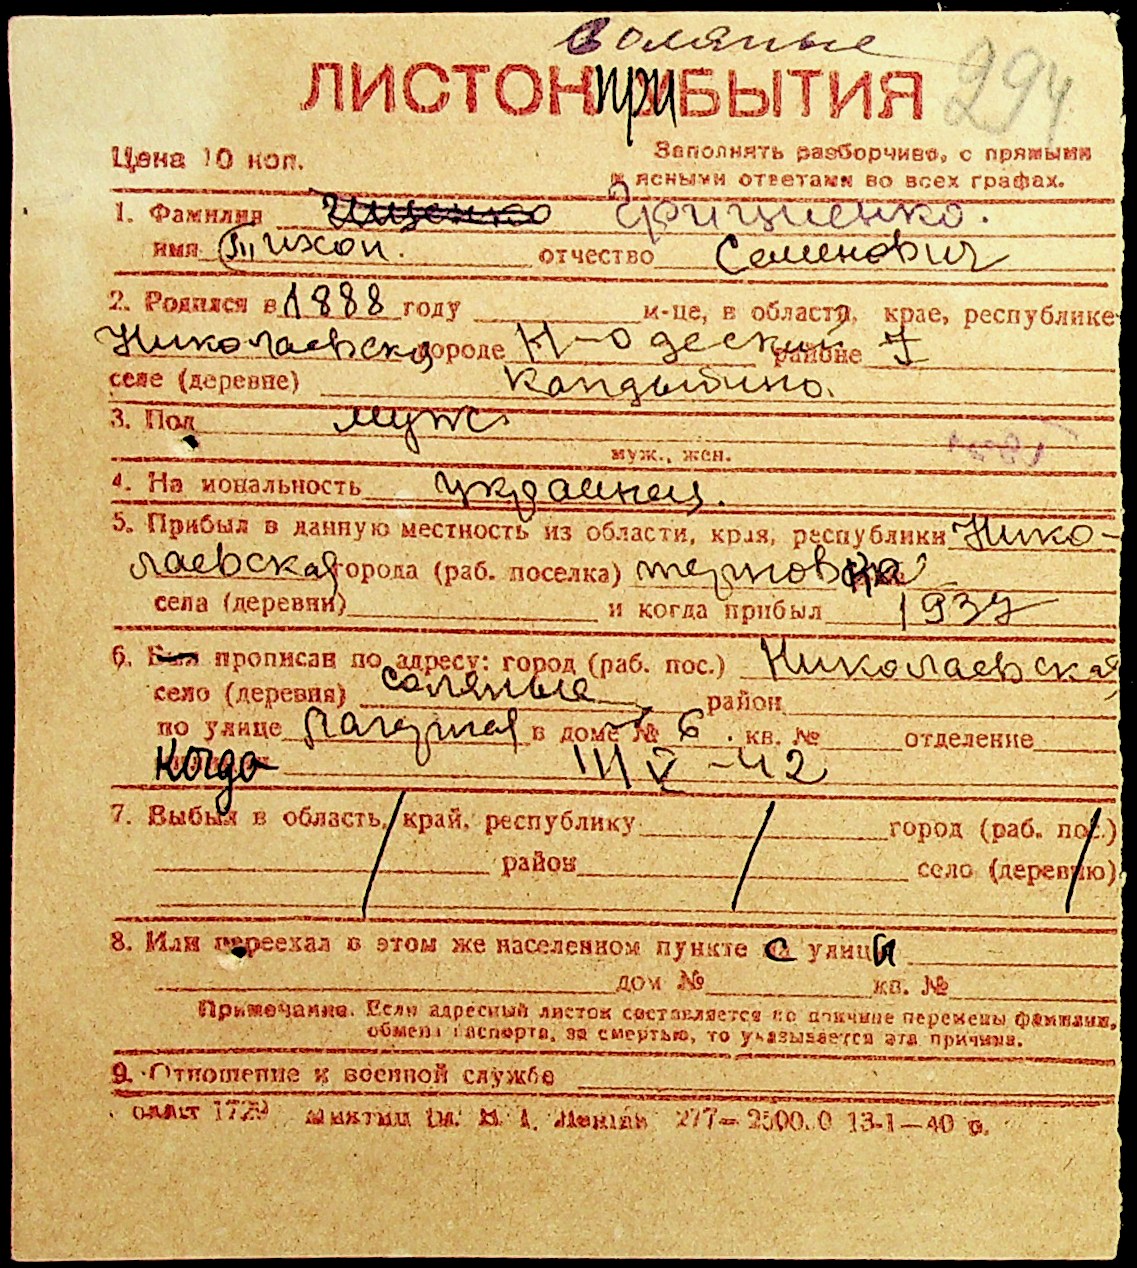 Соляные
ЛИСТОК ПРИБЫТИЯ 294
Цена 10 коп. Заполнять разборчиво, с прямыми
и ясными ответами во всех графах.
1. Фамилия Ищенко Гриценко.
имя Тихон. отчество Семенович
2. Родился в 1888 году м-це, в области, крае, республике
Николаевская городе Н-Одеский районе
селе (деревне) Кандыбино.
3. Пол муж
муж., жен.
4. Национальность украинец.
5. Прибыл в данную местность из области, края, республики Нико-
лаевская города (раб. поселка) терновка
села (деревни) и когда прибыл 1937
6. Был прописан по адресу: город (раб. пос.) Николаевская
село (деревня) соляные район
по улице в доме № 6. кв. № отделение
когда III V-42
7. Выбыл в область, край, республику город (раб. пос.)
район село (деревню)
8. Или переехал в этом же населенном пункте с улицы
дом № кв. №
Примечание. Если адресный листок составляется по причине перемены фамилии,
обмена паспорта, за смертью, то указывается эта причина.
9. Отношение к военной службе
277—2500.0 13-1—40 г.